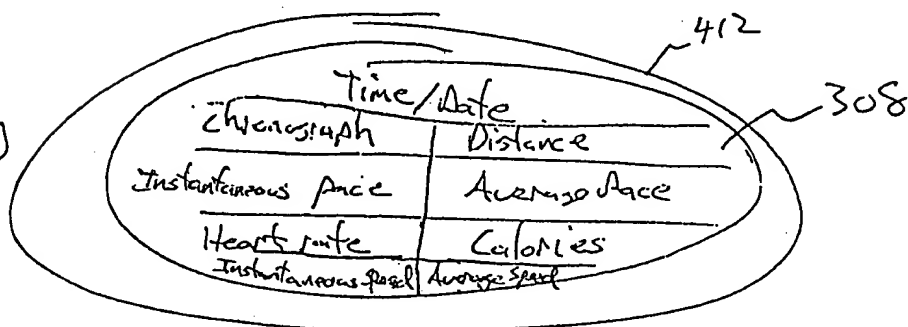 412
Time/Date
308
Chronograph Distance
Instantaneous Pace Average Pace
Heart rate Calories
Instantaneous Speed Average Speed